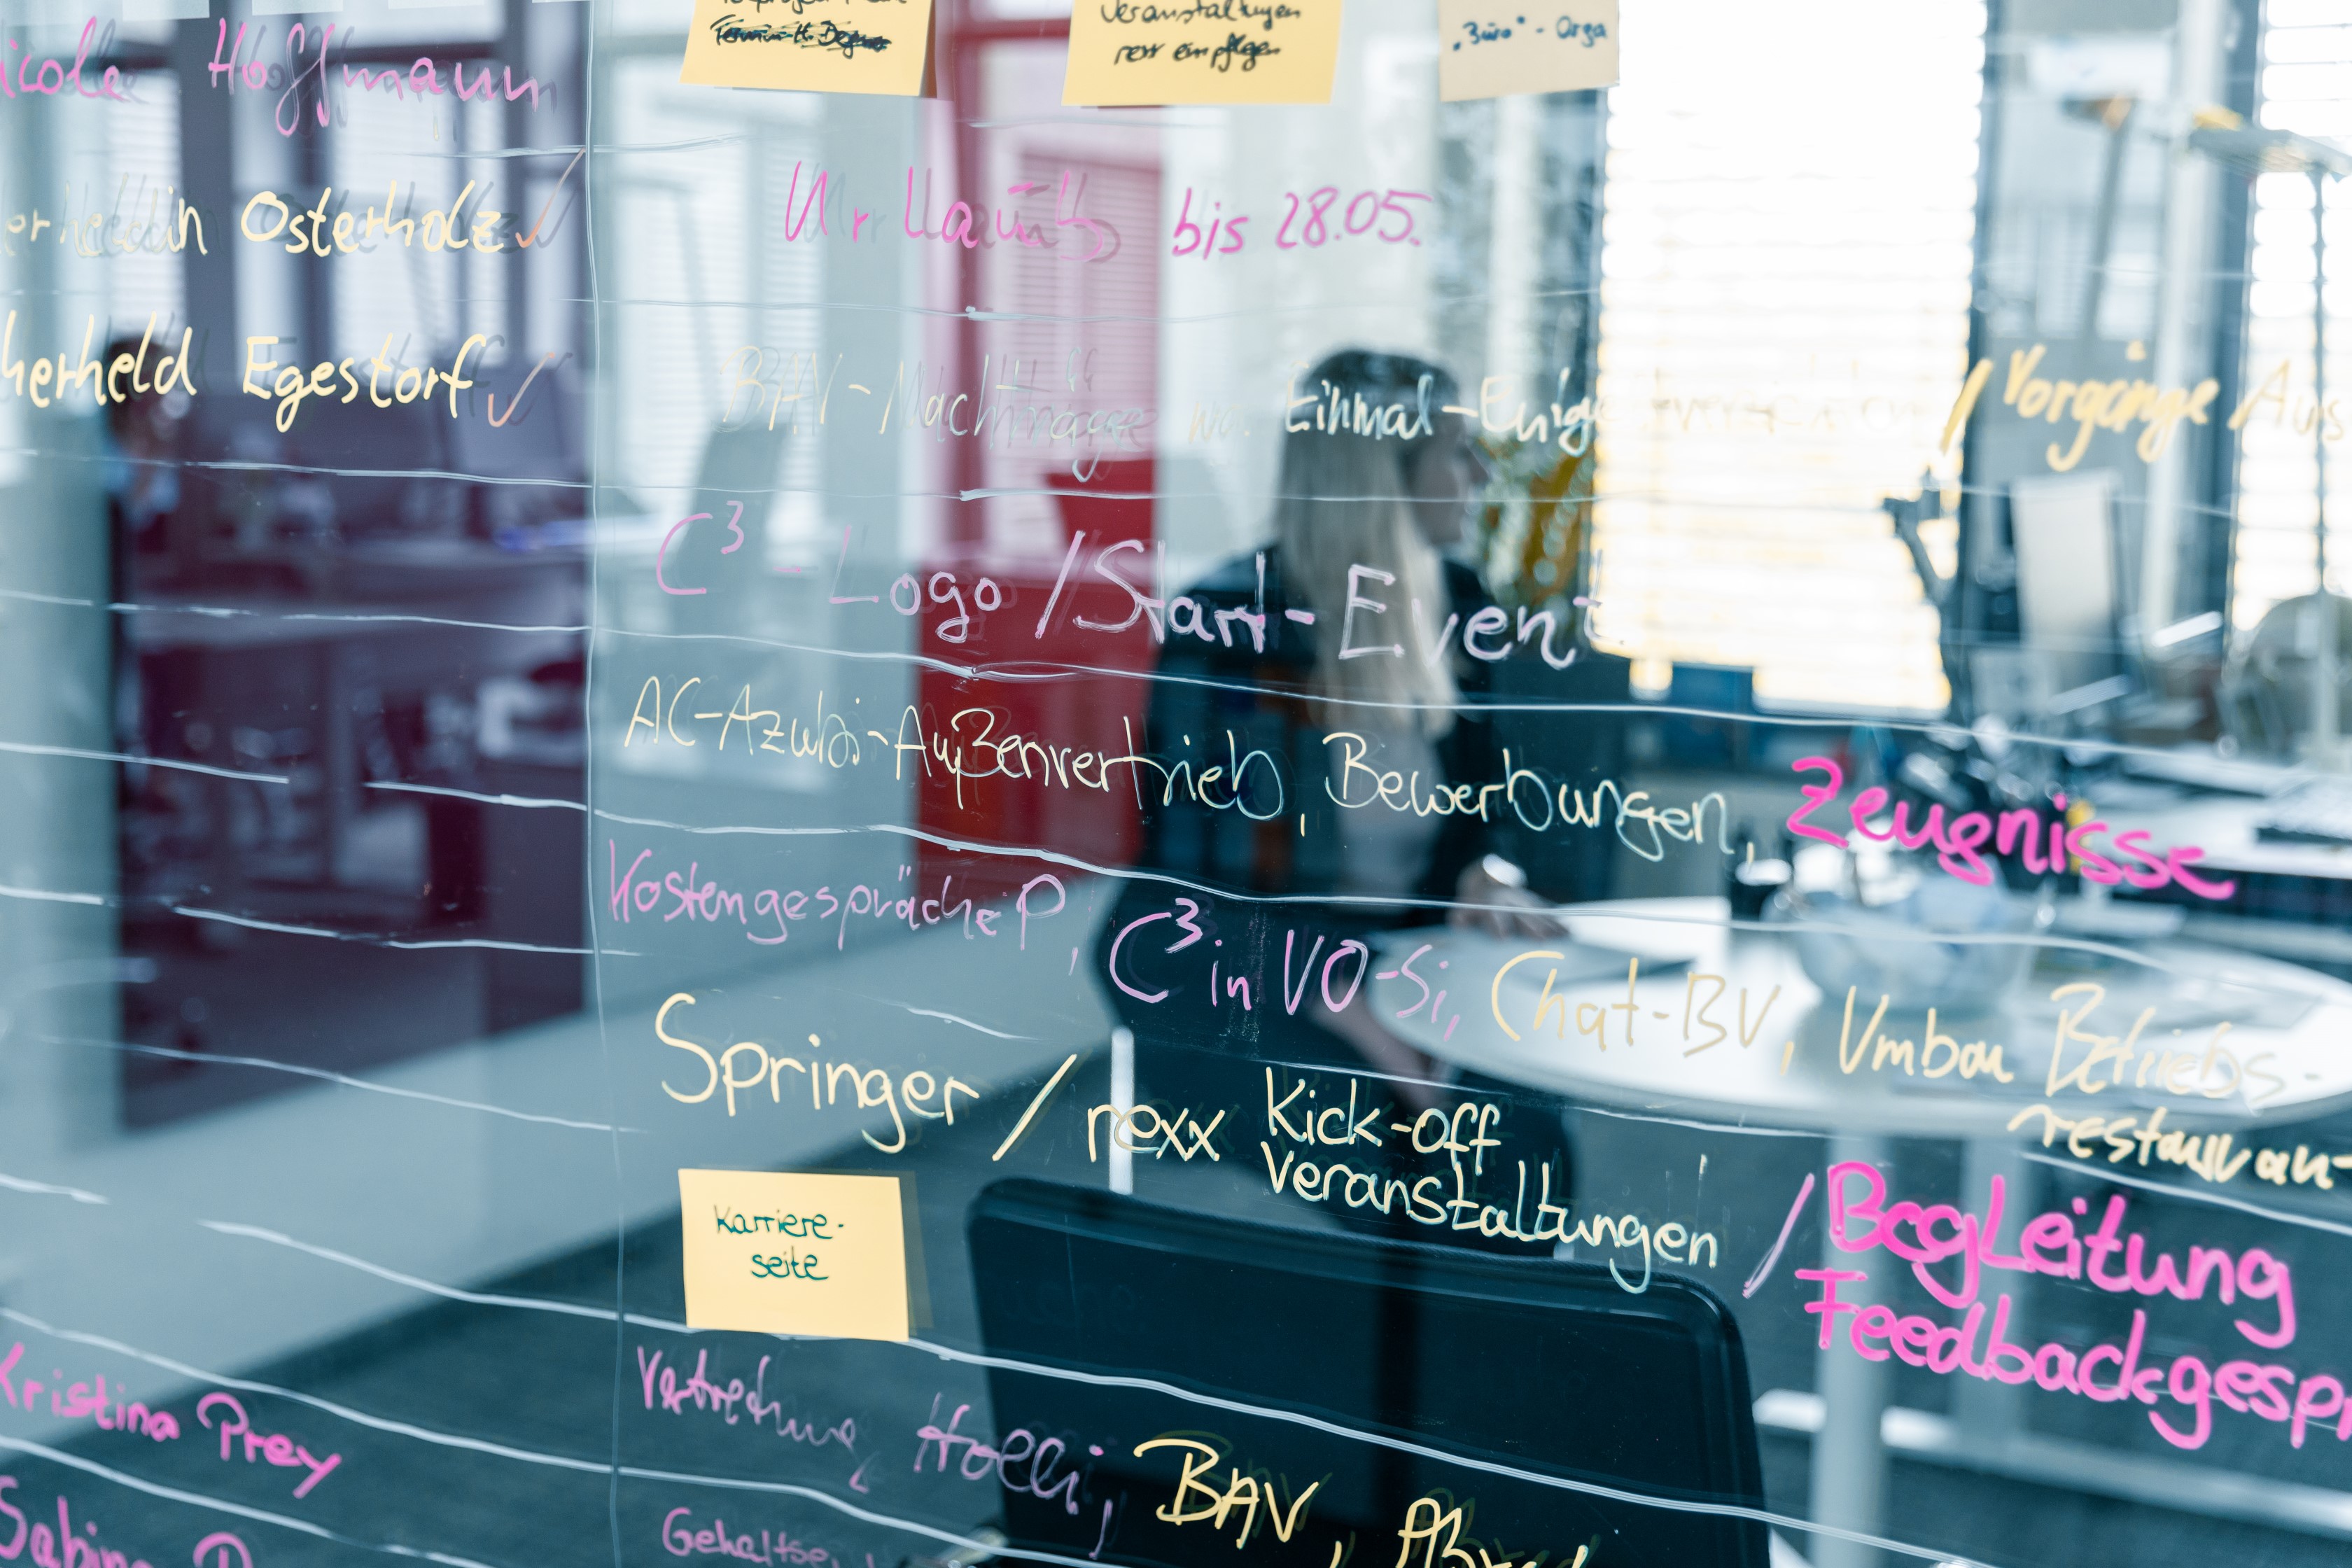 Veranstaltungen
rexx einpflegen
"Büro" - Orga
Hoffmann
Urlaub bis 28.05.
Osterholz ✓
Egestorf ✓
BAV-Nachträge wg. Einmal- / Vorgänge / Aus
C³ - Logo / Start-Event
AC-Azubi-Außenvertrieb, Bewerbungen, Zeugnisse
Kostengespräche P, C³ in VO-Si, Chat-BV, Umbau Betriebs-
restaurant
Springer / rexx Kick-off
Veranstaltungen / Begleitung
Feedbackgespr
Karriere-
seite
Kristina Prey
Vertretung Holli, BAV,
Sabine
Gehaltse